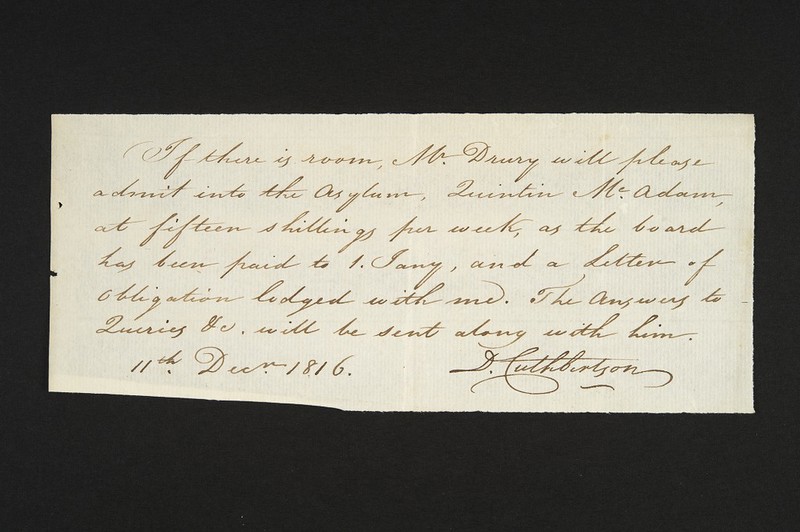 If there is room, Mr. Drury will please
admit into the Asylum, Quintin Mc. Adam,
at fifteen shillings per week, as the board
has been paid to 1. Jany, and a Letter of
Obligation lodged with me. The Answers to
Queries &c. will be sent along with him.
11th. Decr. 1816. D. Cuthbertson